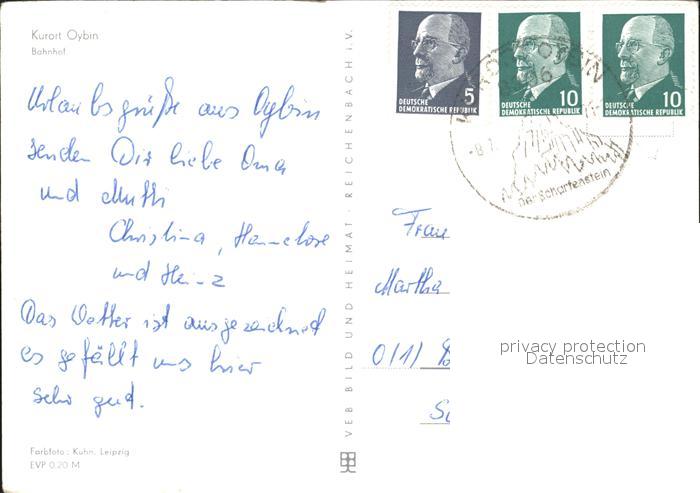 Kurort Oybin
Bahnhof
Urlaubsgrüße aus Oybin
senden Dir liebe Oma
und Mutti
Christina, Hannelore
und Heinz
Das Wetter ist ausgezeichnet
es gefällt uns hier
sehr gut.
Farbfoto: Kuhn, Leipzig
EVP 0,20 M
VEB BILD UND HEIMAT · REICHENBACH i. V.
5
DEUTSCHE
DEMOKRATISCHE REPUBLIK
10
DEUTSCHE
DEMOKRATISCHE REPUBLIK
10
DEUTSCHE
DEMOKRATISCHE REPUBLIK
KURORT OYBIN
Der Scharfenstein
Frau
Martha
privacy protection
Datenschutz